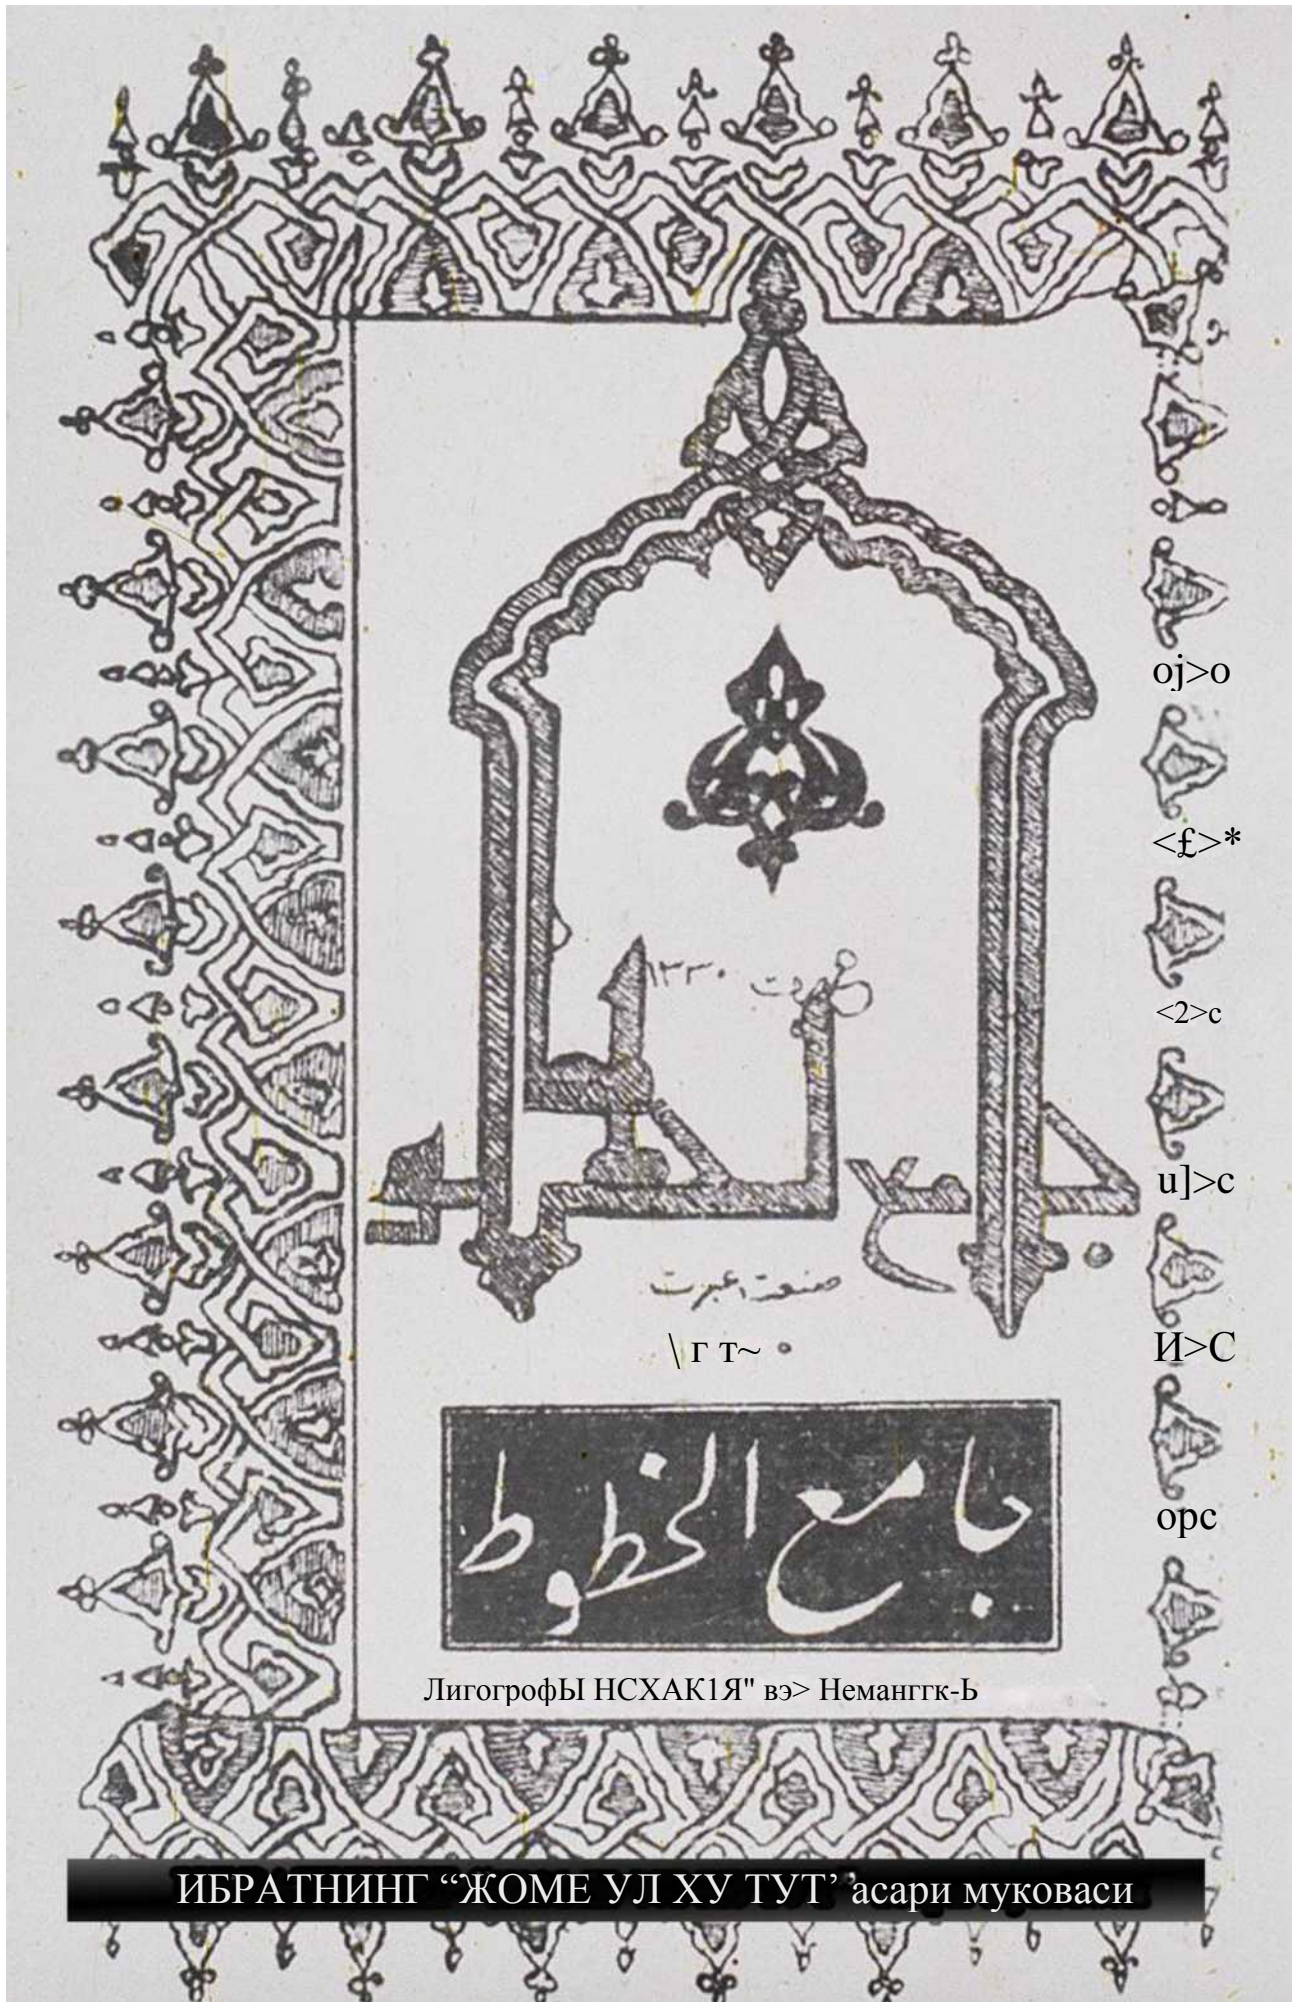 oj>o
<£>*
<2>c
u]>c
صنعت عبرت
\ г т~ °
И>С
جامع الخطوط
орс
ЛигогрофЫ НСХАК1Я" вэ> Неманггк-Ь
ИБРАТНИНГ “ЖОМЕ УЛ ХУ ТУТ’ ’асари муковаси